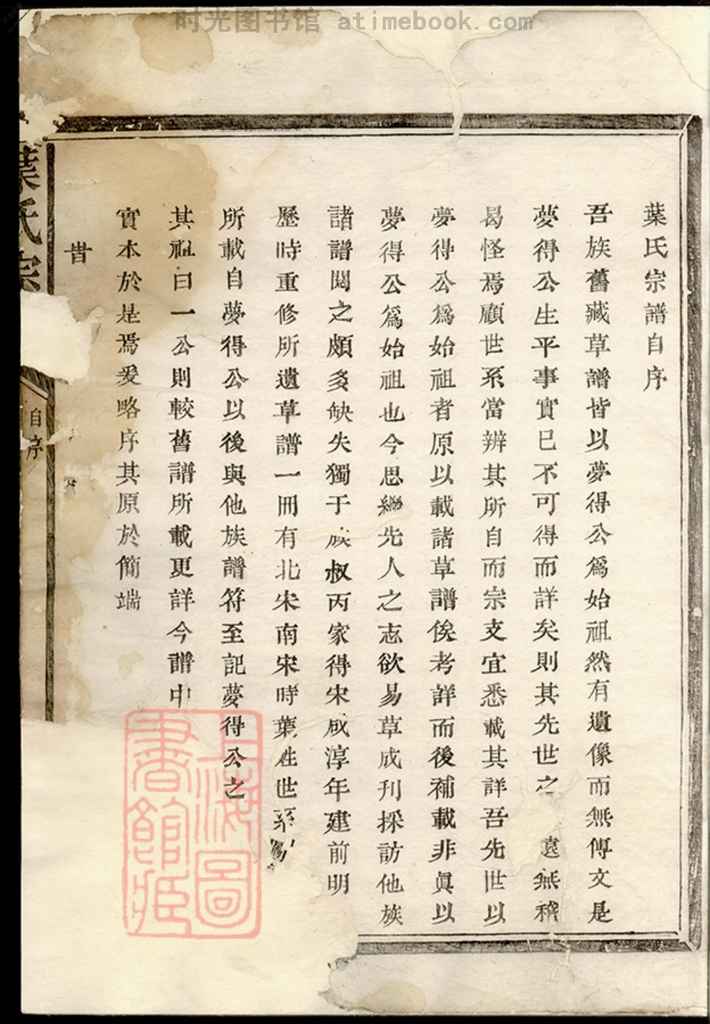 时光图书馆 atimebook.com
葉氏宗譜自序
吾族舊藏草譜皆以夢得公為始祖然有遺像而無傳文是
夢得公生平事實已不可得而詳矣則其先世之 遠無稽
曷怪焉顧世系當辨其所自而宗支宜悉載其詳吾先世以
夢得公為始祖者原以載諸草譜俟考詳而後補載非眞以
夢得公為始祖也今思繼先人之志欲易草成刊採訪他族
諸譜閱之頗多缺失獨于族叔丙家得宋咸淳年建前明
歷時重修所遺草譜一冊有北宋南宋時葉姓世系
所載自夢得公以後與他族譜符至記夢得公之
其祖曰一公則較舊譜所載更詳今譜中
實本於是焉爰略序其原於簡端
昔
葉氏宗
自序
上海圖書館藏